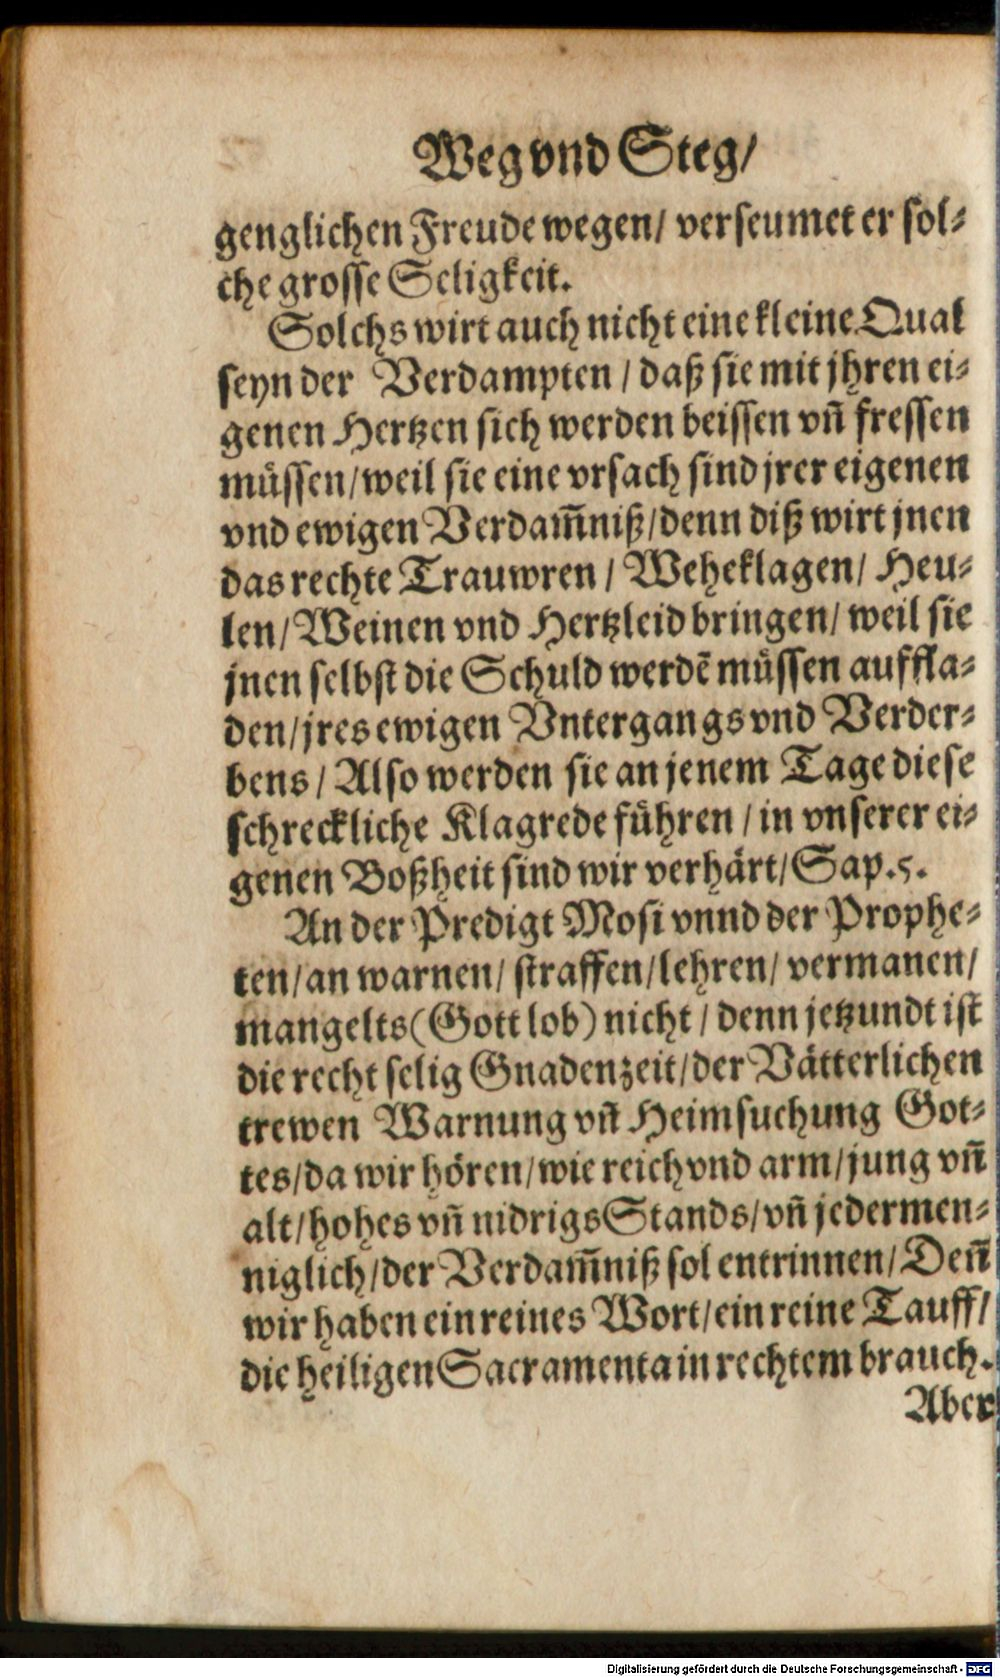 Weg vnd Steg/
genglichen Freude wegen/ verseumet er sol⸗
che grosse Seligkeit.
Solchs wirt auch nicht eine kleine Qual
seyn der Verdampten / daß sie mit jhren ei⸗
genen Hertzen sich werden beissen vñ fressen
müssen/weil sie eine vrsach sind jrer eigenen
vnd ewigen Verdam̃niß/denn diß wirt jnen
das rechte Trauwren / Weheklagen/ Heu⸗
len/Weinen vnd Hertzleid bringen/ weil sie
jnen selbst die Schuld werdē müssen auffla⸗
den/jres ewigen Vntergangs vnd Verder⸗
bens / Also werden sie an jenem Tage diese
schreckliche Klagrede führen / in vnserer ei⸗
genen Boßheit sind wir verhärt/Sap.5.
An der Predigt Mosi vnnd der Prophe⸗
ten/an warnen/ straffen/lehren/ vermanen/
mangelts(Gott lob) nicht / denn jetzundt ist
die recht selig Gnadenzeit/der Vätterlichen
trewen Warnung vñ Heimsuchung Got⸗
tes/da wir hören/wie reich vnd arm/jung vñ
alt/hohes vñ nidrigs Stands/vñ jedermen⸗
niglich/der Verdam̃niß sol entrinnen/Deñ
wir haben ein reines Wort/ein reine Tauff/
die heiligen Sacramenta in rechtem brauch.
Aber
Digitalisierung gefördert durch die Deutsche Forschungsgemeinschaft - DFG